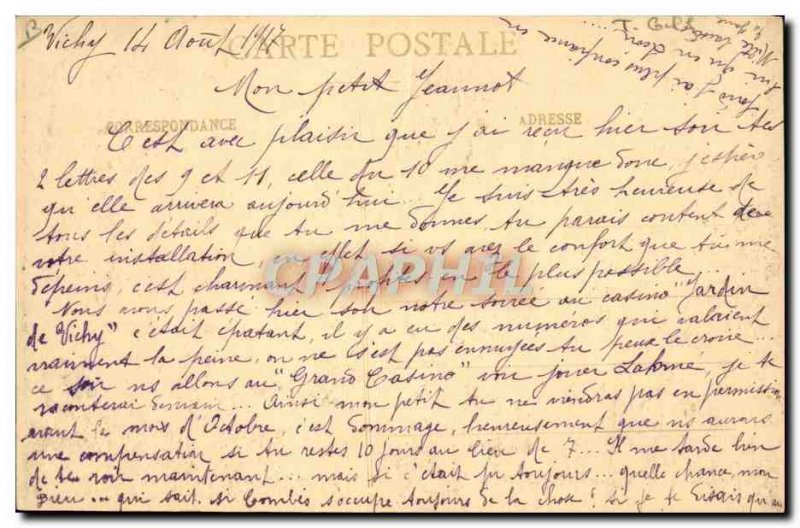 Vichy 14 Août 1917
CARTE POSTALE
Mon petit Jeannot
CORRESPONDANCE
ADRESSE
C'est avec plaisir que j'ai reçu hier soir tes
2 lettres des 9 et 11, celle du 10 me manque donc, j'espère
qu'elle arrivera aujourd'hui... Je suis très heureuse de
tous les détails que tu me donnes. Tu parais content de
votre installation, en effet si vs avez le confort que tu me
dépeins, c'est charmant, profites en le plus possible...
Nous avons passé hier soir notre soirée au casino "Jardin
de Vichy" c'était épatant, il y a eu des numéros qui valaient
vraiment la peine, on ne s'est pas ennuyées tu peux le croire...
ce soir ns allons au "Grand Casino" voir jouer Lakmé, je te
raconterai demain... Ainsi mon petit tu ne viendras pas en permission
avant le mois d'Octobre, c'est dommage, heureusement que ns aurons
une compensation si tu restes 10 jours au lieu de 7... Il me tarde bien
de te voir maintenant... mais si c'était pr toujours... quelle chance, mon
Dieu... qui sait si Combes s'occupe toujours de la chose? si je te disais que
j'ai plus confiance en
CPAPHIL